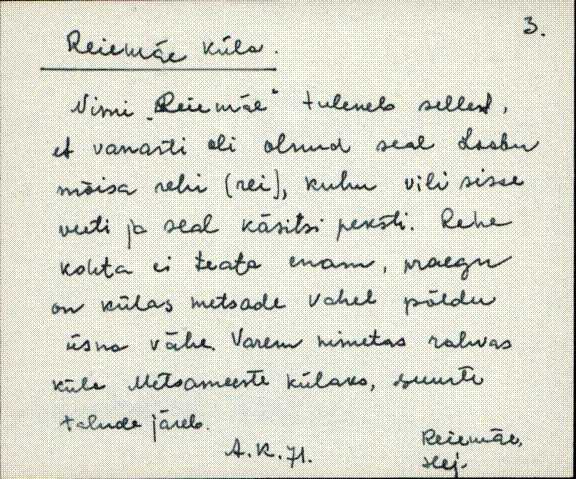 3.
Reiemäe küla.
Nimi „Reiemäe" tuleneb sellest,
et vanasti oli olnud seal Loobu
mõisa rehi (rei), kuhu vili sisse
veeti ja seal käsitsi peksti. Rehe
kohta ei teata enam, praegu
on külas metsade vahel põldu
üsna vähe. Varem nimetas rahvas
küla Metsameeste külaks, suurte
talude järelo.
A.K. 71.
Reiemäe,
Hlj.